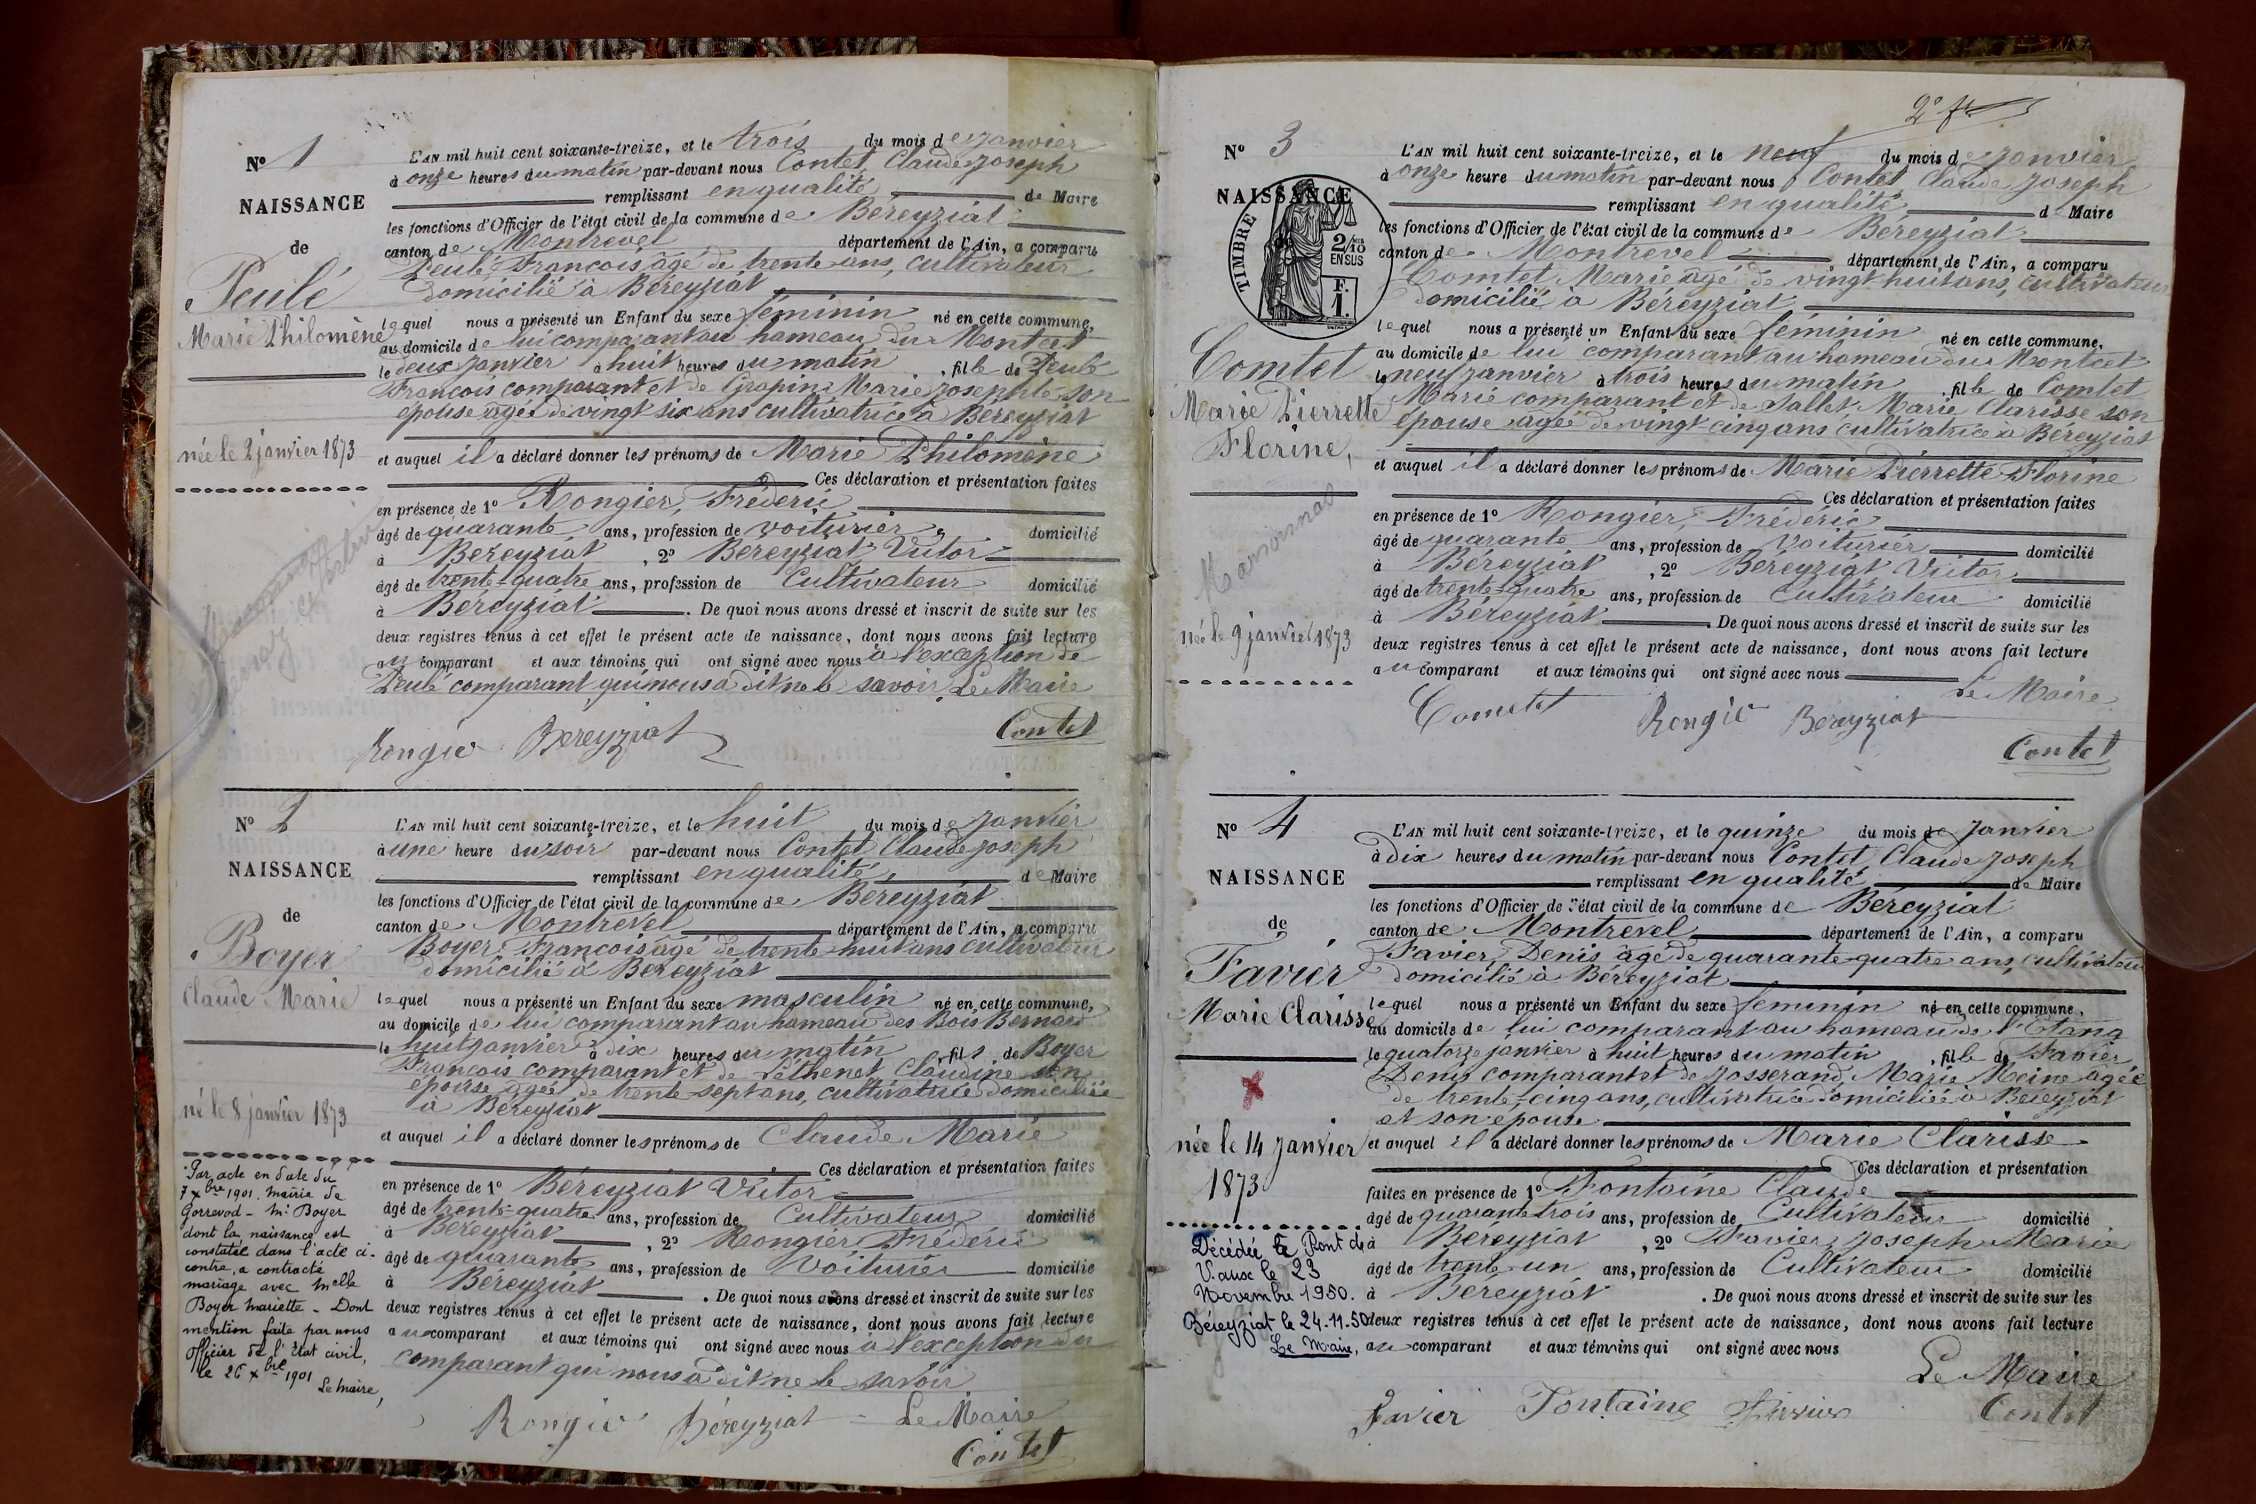 N° 1
NAISSANCE
de
Peulé
Marie Philomène
née le 2 janvier 1873
L'AN mil huit cent soixante-treize, et le trois du mois de janvier
à onze heures du matin par-devant nous Contet, Claude Joseph
remplissant en qualité de Maire
les fonctions d'Officier de l'état civil de la commune de Béreyziat
canton de Montrevel département de l'Ain, a comparu
Peulé François âgé de trente ans, cultivateur
domicilié à Béreyziat
lequel nous a présenté un Enfant du sexe féminin né en cette commune,
au domicile de lui comparant au hameau du Montcet
le deux janvier à huit heures du matin, fille de Peulé
François comparant et de Grapinz Marie Josephte son
épouse âgée de vingt six ans cultivatrice à Béreyziat
et auquel il a déclaré donner les prénoms de Marie Philomène
Ces déclaration et présentation faites
en présence de 1° Rongier, Fréderic
âgé de quarante ans, profession de voiturier domicilié
à Béreyziat, 2° Béreyziat Victor
âgé de trente-quatre ans, profession de Cultivateur domicilié
à Béreyziat. De quoi nous avons dressé et inscrit de suite sur les
deux registres tenus à cet effet le présent acte de naissance, dont nous avons fait lecture
au comparant et aux témoins qui ont signé avec nous à l'exception de
Peulé comparant qui nous a dit ne le savoir Le Maire
Rongie Bereyziat Contet
N° 2
NAISSANCE
de
Boyer
Claude Marie
né le 8 janvier 1873
Par acte en date du
7 Xbre 1901. mairie de
Gorrevod - Mr Boyer
dont la naissance est
constatée dans l'acte ci-
contre, a contracté
mariage avec Melle
Boyer Mariette - Dont
mention faite par nous
officier de l'état civil,
le 26 Xbre 1901
Le maire,
L'AN mil huit cent soixante-treize, et le huit du mois de janvier
à une heure du soir par-devant nous Contet Claude Joseph
remplissant en qualité de Maire
les fonctions d'Officier de l'état civil de la commune de Béreyziat
canton de Montrevel département de l'Ain, a comparu
Boyer François âgé de trente huit ans cultivateur
domicilié à Béreyziat
lequel nous a présenté un Enfant du sexe masculin né en cette commune,
au domicile de lui comparant au hameau des Bois Bernard
le huit janvier à dix heures du matin, fils de Boyer
François comparant et de Péthenet Claudine son
épouse âgée de trente sept ans, cultivatrice domiciliée
à Béreyziat
et auquel il a déclaré donner les prénoms de Claude Marie
Ces déclaration et présentation faites
en présence de 1° Béreyziat Victor
âgé de trente-quatre ans, profession de Cultivateur domicilié
à Béreyziat, 2° Rongier Fréderic
âgé de quarante ans, profession de Voiturier domicilié
à Béreyziat. De quoi nous avons dressé et inscrit de suite sur les
deux registres tenus à cet effet le présent acte de naissance, dont nous avons fait lecture
au comparant et aux témoins qui ont signé avec nous à l'exception du
comparant qui nous a dit ne le savoir
Rongie Béreyziat Le Maire
Contet
N° 3
NAISSANCE
TIMBRE
2/10
EN SUS
F.
1.
Comtet
Marie Pierrette
Florine,
née le 9 janvier 1873
L'AN mil huit cent soixante-treize, et le neuf du mois de janvier
à onze heure du matin par-devant nous Contet, Claude Joseph
remplissant en qualité de Maire
les fonctions d'Officier de l'état civil de la commune de Béreyziat
canton de Montrevel département de l'Ain, a comparu
Comtet Marie âgé de vingt huit ans, cultivateur
domicilié à Béreyziat
lequel nous a présenté un Enfant du sexe féminin né en cette commune,
au domicile de lui comparant au hameau du Montcet
le neuf janvier à trois heures du matin, fille de Comtet
Marie comparant et de Sallet Marie Clarisse son
épouse âgée de vingt-cinq ans cultivatrice à Béreyziat
et auquel il a déclaré donner les prénoms de Marie Pierrette Florine
Ces déclaration et présentation faites
en présence de 1° Rongier, Fréderic
âgé de quarante ans, profession de Voiturier domicilié
à Béreyziat, 2° Béreyziat Victor
âgé de trente-quatre ans, profession de Cultivateur domicilié
à Béreyziat. De quoi nous avons dressé et inscrit de suite sur les
deux registres tenus à cet effet le présent acte de naissance, dont nous avons fait lecture
au comparant et aux témoins qui ont signé avec nous
Le Maire
Comtet Rongie Bereyziat
Contet
N° 4
NAISSANCE
de
Favier
Marie Clarisse
née le 14 janvier
1873
Décédée à Pont de
Vaux le 23
Novembre 1950.
Béreyziat le 24.11.50
Le Maire,
L'AN mil huit cent soixante-treize, et le quinze du mois de janvier
à dix heures du matin par-devant nous Contet, Claude Joseph
remplissant en qualité de Maire
les fonctions d'Officier de l'état civil de la commune de Béreyziat
canton de Montrevel département de l'Ain, a comparu
Favier, Denis âgé de quarante-quatre ans, cultivateur
domicilié à Béreyziat
lequel nous a présenté un Enfant du sexe féminin né en cette commune,
au domicile de lui comparant au hameau de l'Etang
le quatorze janvier à huit heures du matin, fille de Favier
Denis comparant et de Josserand Marie Reine âgée
de trente-cinq ans, cultivatrice domiciliée à Béreyziat
et son épouse
et auquel il a déclaré donner les prénoms de Marie Clarisse
Ces déclaration et présentation
faites en présence de 1° Fontaine Claude
âgé de quarante trois ans, profession de Cultivateur domicilié
à Béreyziat, 2° Favier, Joseph Marie
âgé de trente un ans, profession de Cultivateur domicilié
à Béreyziat. De quoi nous avons dressé et inscrit de suite sur les
deux registres tenus à cet effet le présent acte de naissance, dont nous avons fait lecture
au comparant et aux témoins qui ont signé avec nous
Le Maire
Favier Fontaine Favier Contet